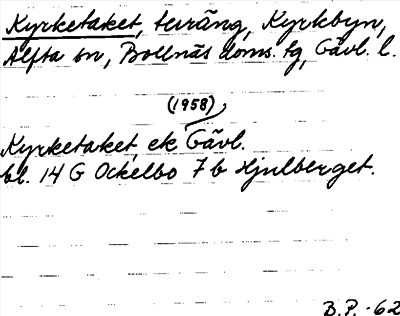 Kyrketaket, terräng, Kyrkbyn,
Alfta sn, Bollnäs doms. tg, Gävl. l.
(1958)
Kyrketaket, ek Gävl.
bl. 14 G Ockelbo 7b Hjulberget.
B.P. -62